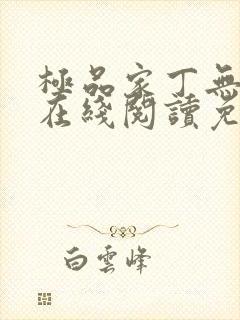 極品家丁無
在綫閱讀免
白雲峰